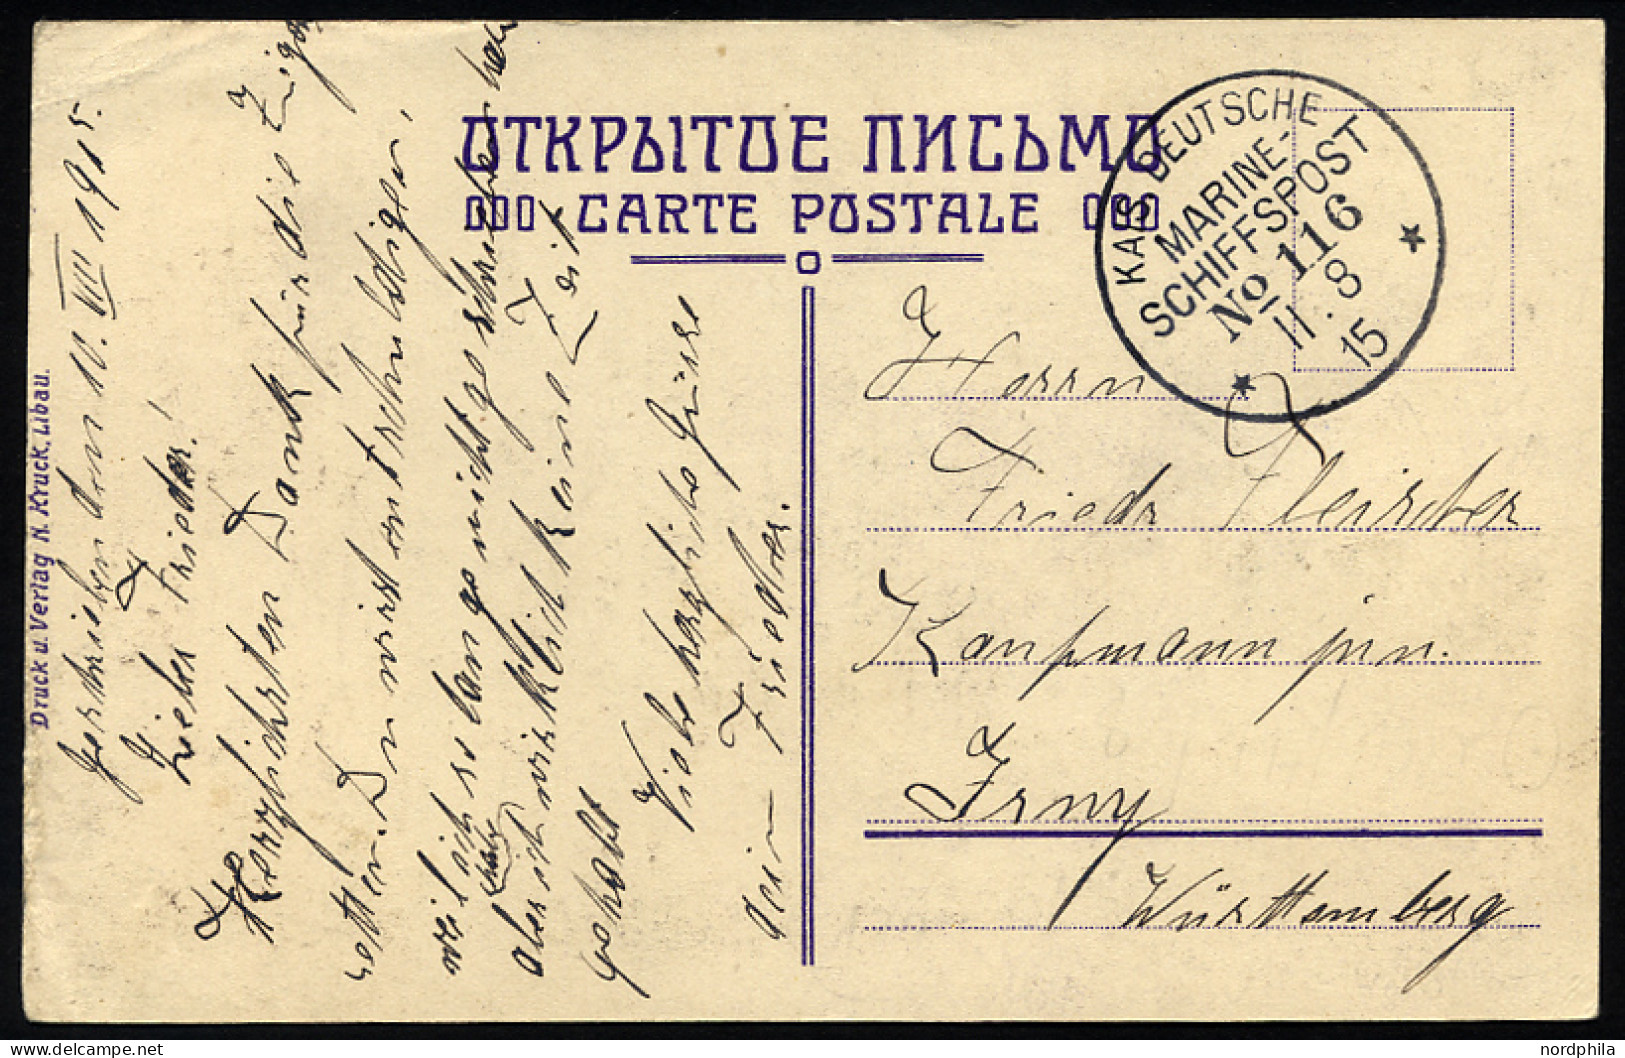 ОТКРЫТОЕ ПИСЬМО
CARTE POSTALE
KAIS. DEUTSCHE
MARINE-
SCHIFFSPOST
No 116
11. 8
15
Druck u. Verlag N. Kruck, Libau.
Geschrieben den 10. VIII 1915.
Lieber Frieder!
Herzlichsten Dank für die Zigar
retten. Du wirst entschuldigen,
weil ich so lange nicht geschrieben habe
aber ich habe wirklich keine Zeit
gehabt
Viele herzliche Grüsse
Dein Frieder.
Herrn
Friedr Fleischer
Kaufmann jun.
Isny
Württemberg
nordphila